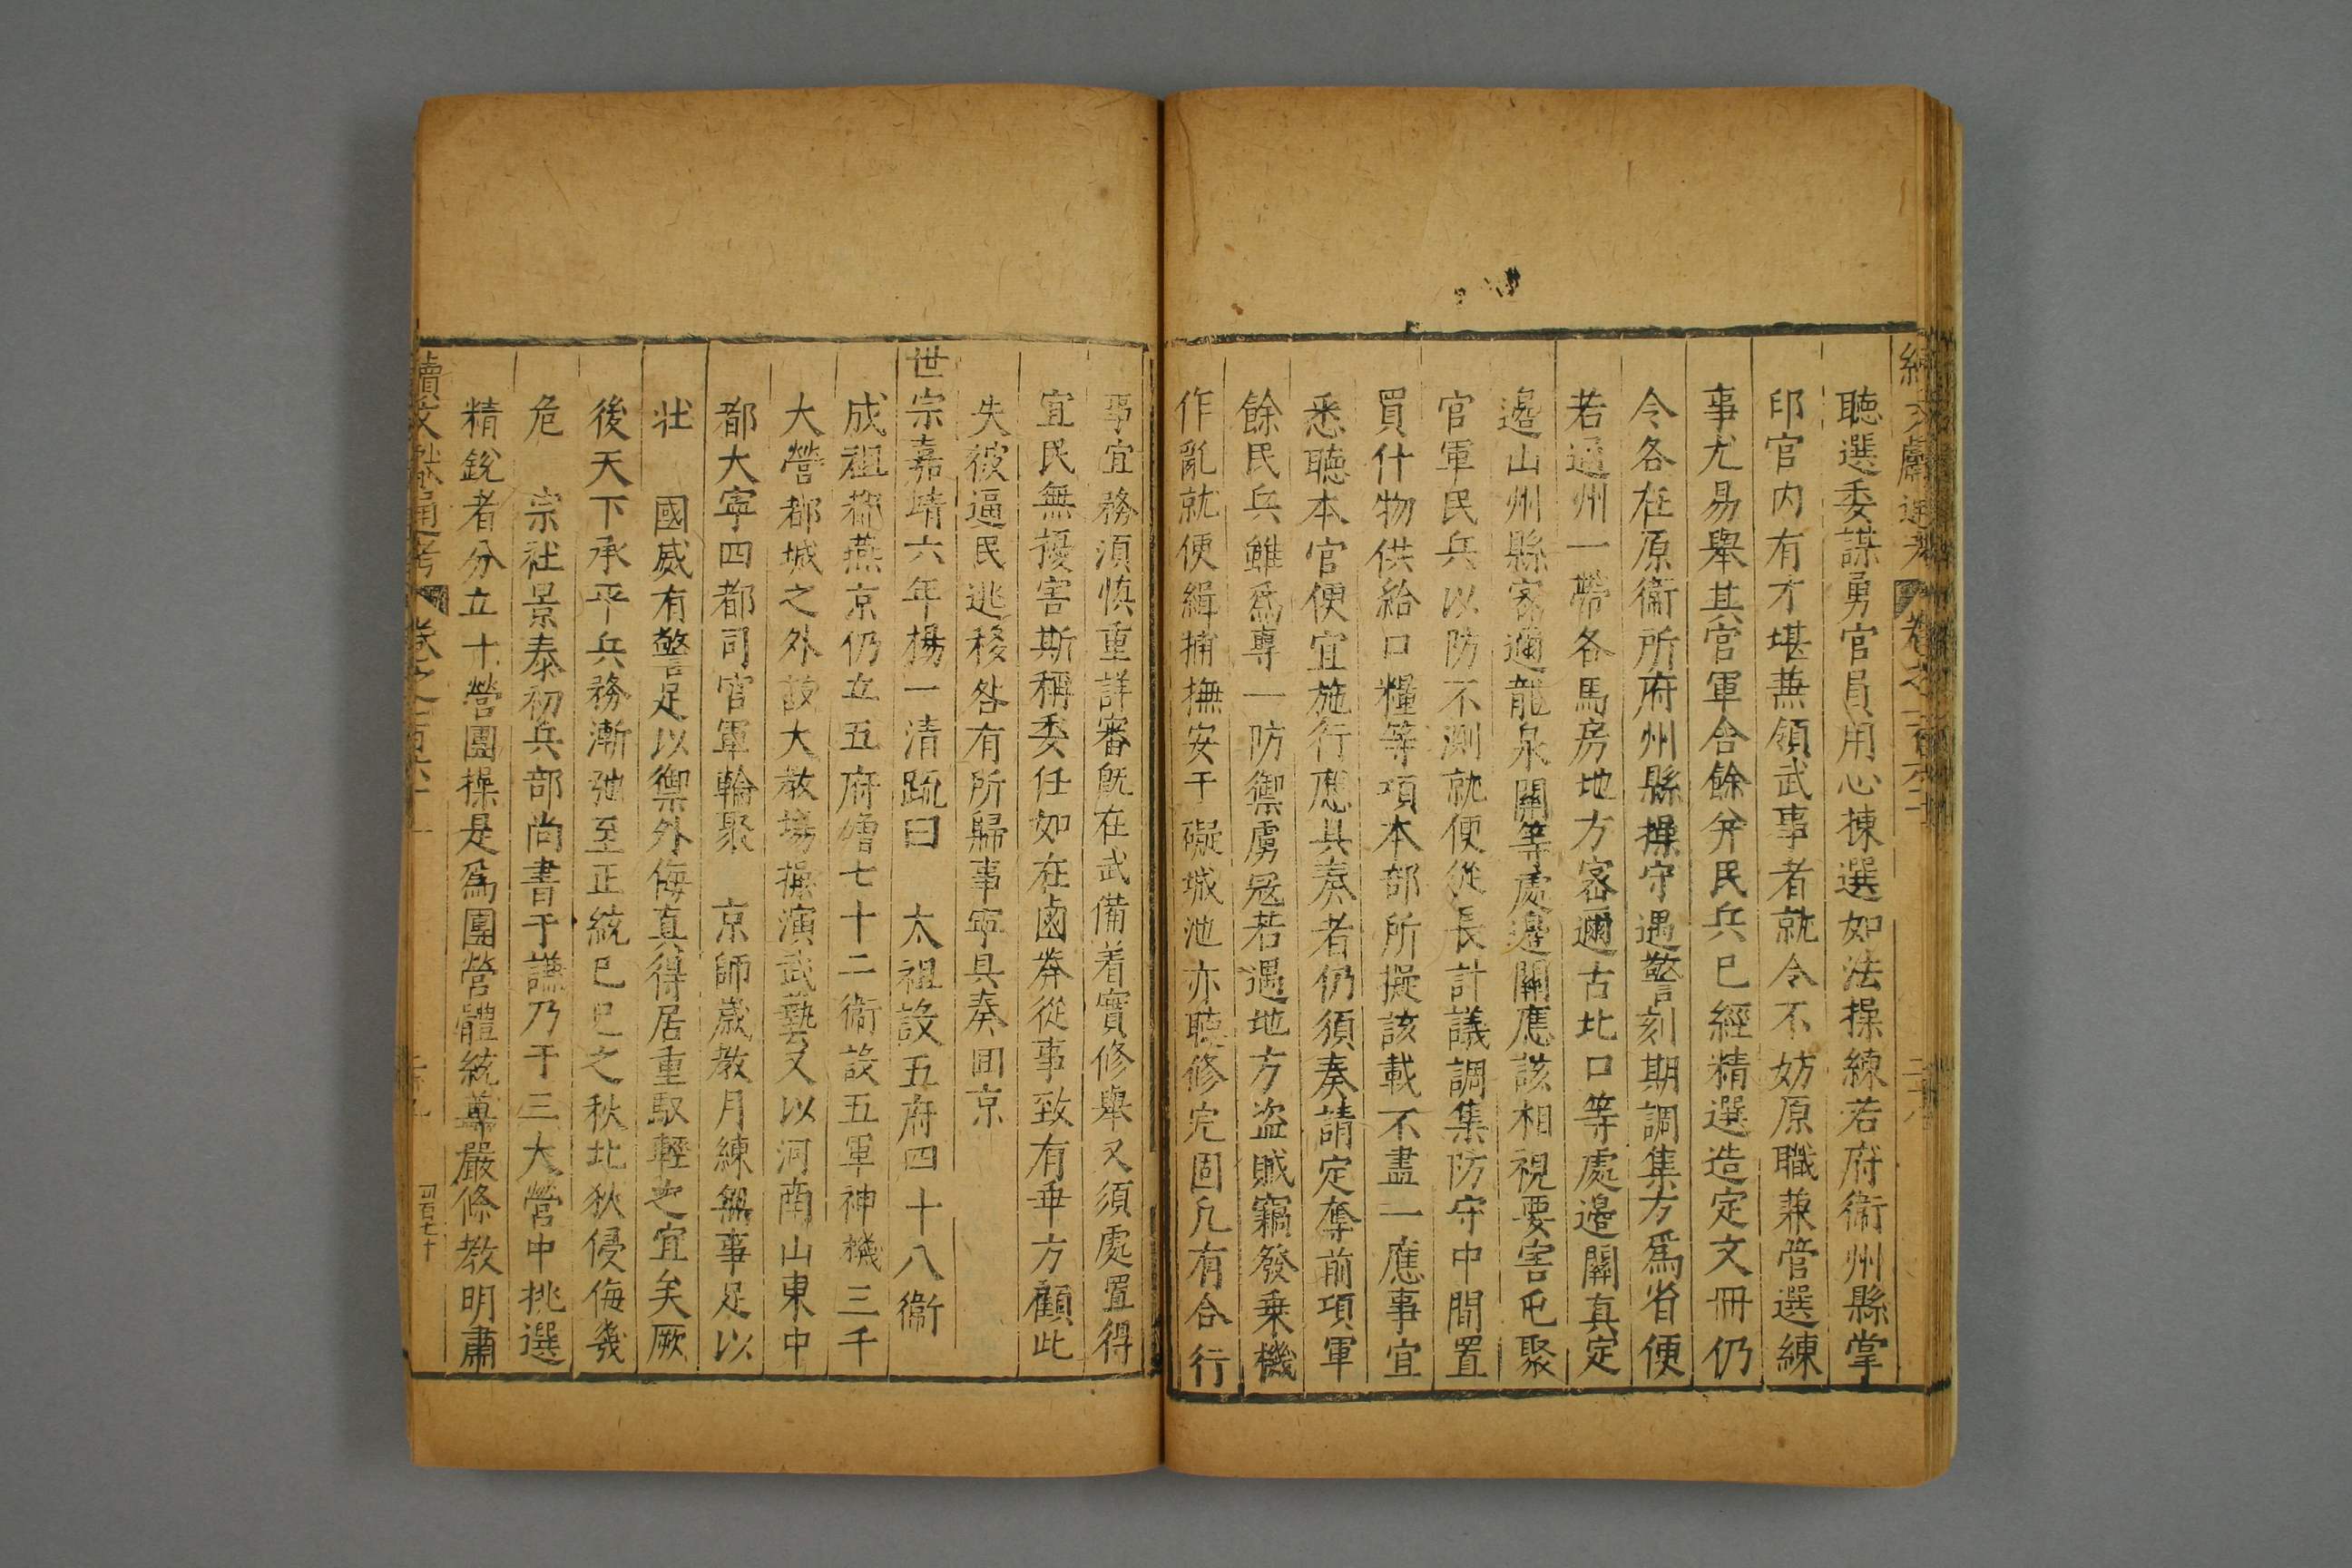 聴選委謀勇官員用心揀選如法操練若府衛州縣掌
印官内有才堪兼領武事者就令不妨原職兼管選練
事尤易舉其官軍合餘并民兵已經精選造定文冊仍
令各在原衞所府州縣操守遇警刻期調集方爲省便
若通州一帶各馬房地方密邇古北口等處邊關真定
邊山州縣密邇龍泉關等處邊關應該相視要害屯聚
官軍民兵以防不測就便從長計議調集防守中間置
買什物供給口糧等項本部所擬該載不盡一應事宜
悉聴本官便宜施行應具奏者仍須奏請定奪前項軍
餘民兵雖爲專一防禦虜冦若遇地方盗賊竊發乗機
作亂就便緝捕撫安干礙城池亦聴修完固凡有合行
事宜務須慎重詳審旣在武備着實修舉又須處置得
宜民無擾害斯稱委任如在鹵莽從事致有乖方顧此
失彼逼民逃移咎有所歸事寧具奏囬京
世宗嘉靖六年楊一清疏曰　太祖設五府四十八衞
成祖都燕京仍立五府增七十二衞設五軍神機三千
大營都城之外設大教塲操演武藝又以河南山東中
都大寧四都司官軍輪聚　京師歲教月練無事足以
壯　國威有警足以禦外侮真得居重馭輕之宜矣厥
後天下承平兵務漸弛至正統已巳之秋北狄侵侮幾
危　宗社景泰初兵部尚書于謙乃于三大營中挑選
精銳者分立十營團操是爲團營體統尊嚴條教明肅
續文獻通考　卷之一百六十　四百七十